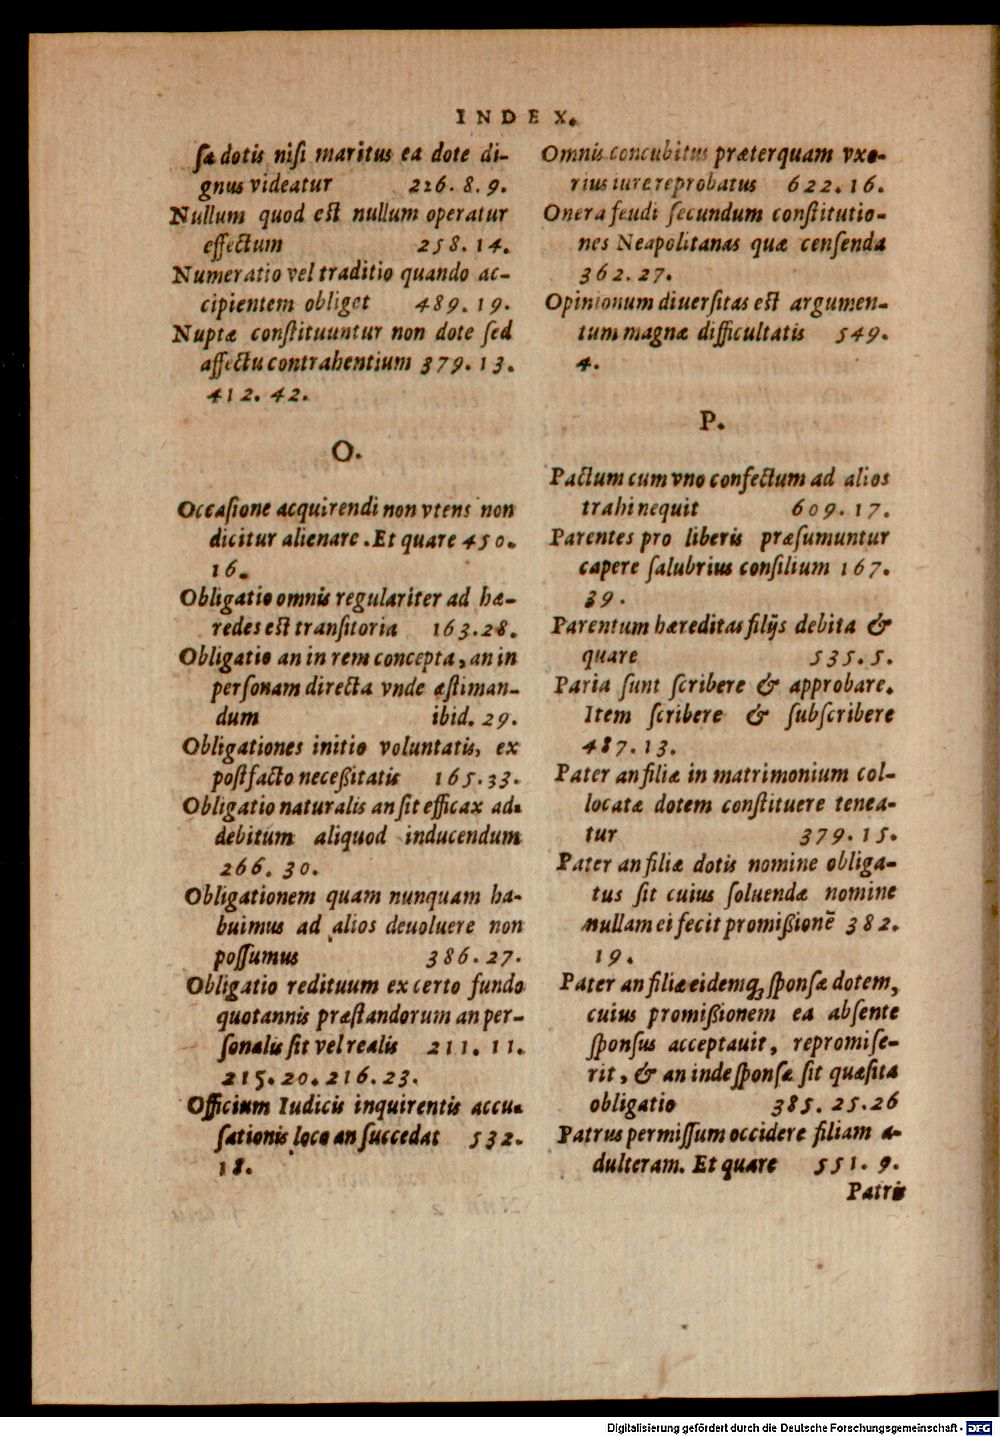 INDEX.
sa dotis nisi maritus ea dote di-
gnus videatur 226. 8. 9.
Nullum quod est nullum operatur
effectum 258. 14.
Numeratio vel traditio quando ac-
cipientem obliget 489. 19.
Nuptæ constituuntur non dote sed
affectu contrahentium 379. 13.
412. 42.
O.
Occasione acquirendi non vtens non
dicitur alienare. Et quare 450.
16.
Obligatio omnis regulariter ad hæ-
redes est transitoria 163. 28.
Obligatio an in rem concepta, an in
personam directa vnde æstiman-
dum ibid. 29.
Obligationes initio voluntatis, ex
postfacto neceßitatis 165. 33.
Obligatio naturalis an sit efficax ad
debitum aliquod inducendum
266. 30.
Obligationem quam nunquam ha-
buimus ad alios deuoluere non
possumus 386. 27.
Obligatio redituum ex certo fundo
quotannis præstandorum an per-
sonalis sit vel realis 211. 11.
215. 20. 216. 23.
Officium Iudicis inquirentis accu-
sationis loco an succedat 532.
18.
Omnis concubitus præterquam vxo-
rius iure reprobatus 622. 16.
Onera feudi secundum constitutio-
nes Neapolitanas quæ censenda
362. 27.
Opinionum diuersitas est argumen-
tum magnæ difficultatis 549.
4.
P.
Pactum cum vno confectum ad alios
trahi nequit 609. 17.
Parentes pro liberis præsumuntur
capere salubrius consilium 167.
39.
Parentum hæreditas filijs debita &
quare 535. 5.
Paria sunt scribere & approbare.
Item scribere & subscribere
487. 13.
Pater an filiæ in matrimonium col-
locatæ dotem constituere tenea-
tur 379. 15.
Pater an filiæ dotis nomine obliga-
tus sit cuius soluendæ nomine
nullam ei fecit promißionẽ 382.
19.
Pater an filiæ eidemq́; sponsæ dotem,
cuius promißionem ea absente
sponsus acceptauit, repromise-
rit, & an inde sponsæ sit quæsita
obligatio 385. 25. 26
Patrus permissum occidere filiam a-
dulteram. Et quare 551. 9.
Patris
Digitalisierung gefördert durch die Deutsche Forschungsgemeinschaft - DFG